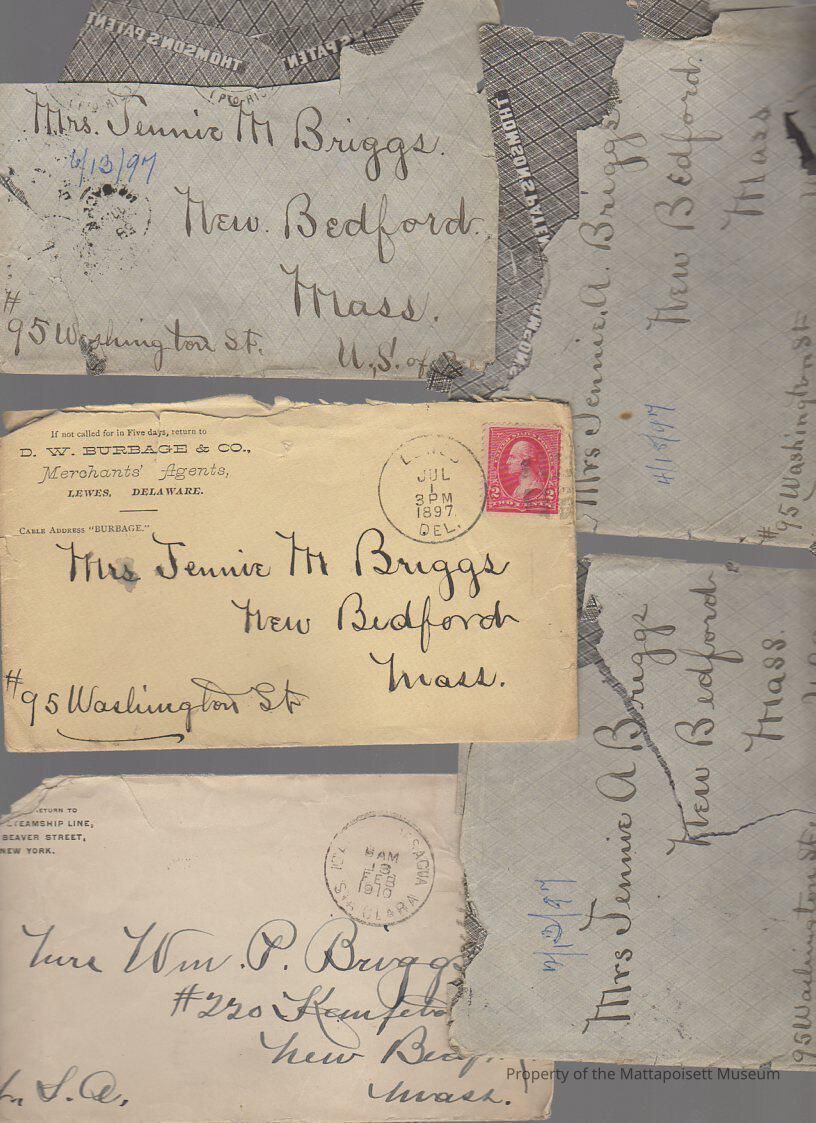 THOMSON'S PATENT
'S PATEN
Mrs. Jennie M Briggs.
6/13/97
New. Bedford.
Mass.
#
95 Washington St.
U.S. of
THOMSON'S PATEN
OMSON'S
Mrs Jennie. A. Briggs
New Bedford.
Mass
4/18/97
#95 Washington St
If not called for in Five days, return to
D. W. BURBAGE & CO.,
Merchants' Agents,
LEWES, DELAWARE.
CABLE ADDRESS "BURBAGE."
LEWES
JUL
1
3 PM
1897
DEL.
2
2
TWO CENTS
Mrs Jennie M Briggs
New Bedford
Mass.
#95 Washington St
Mrs Jennie A Briggs
New Bedford
Mass.
95 Washington St.
ETURN TO
STEAMSHIP LINE,
BEAVER STREET,
NEW YORK.
SAGUA
8 AM
FEB
1910
STA CLARA
Wm. P. Briggs
#220 Kempton
New Bedf
Mass.
S. A.
Property of the Mattapoisett Museum